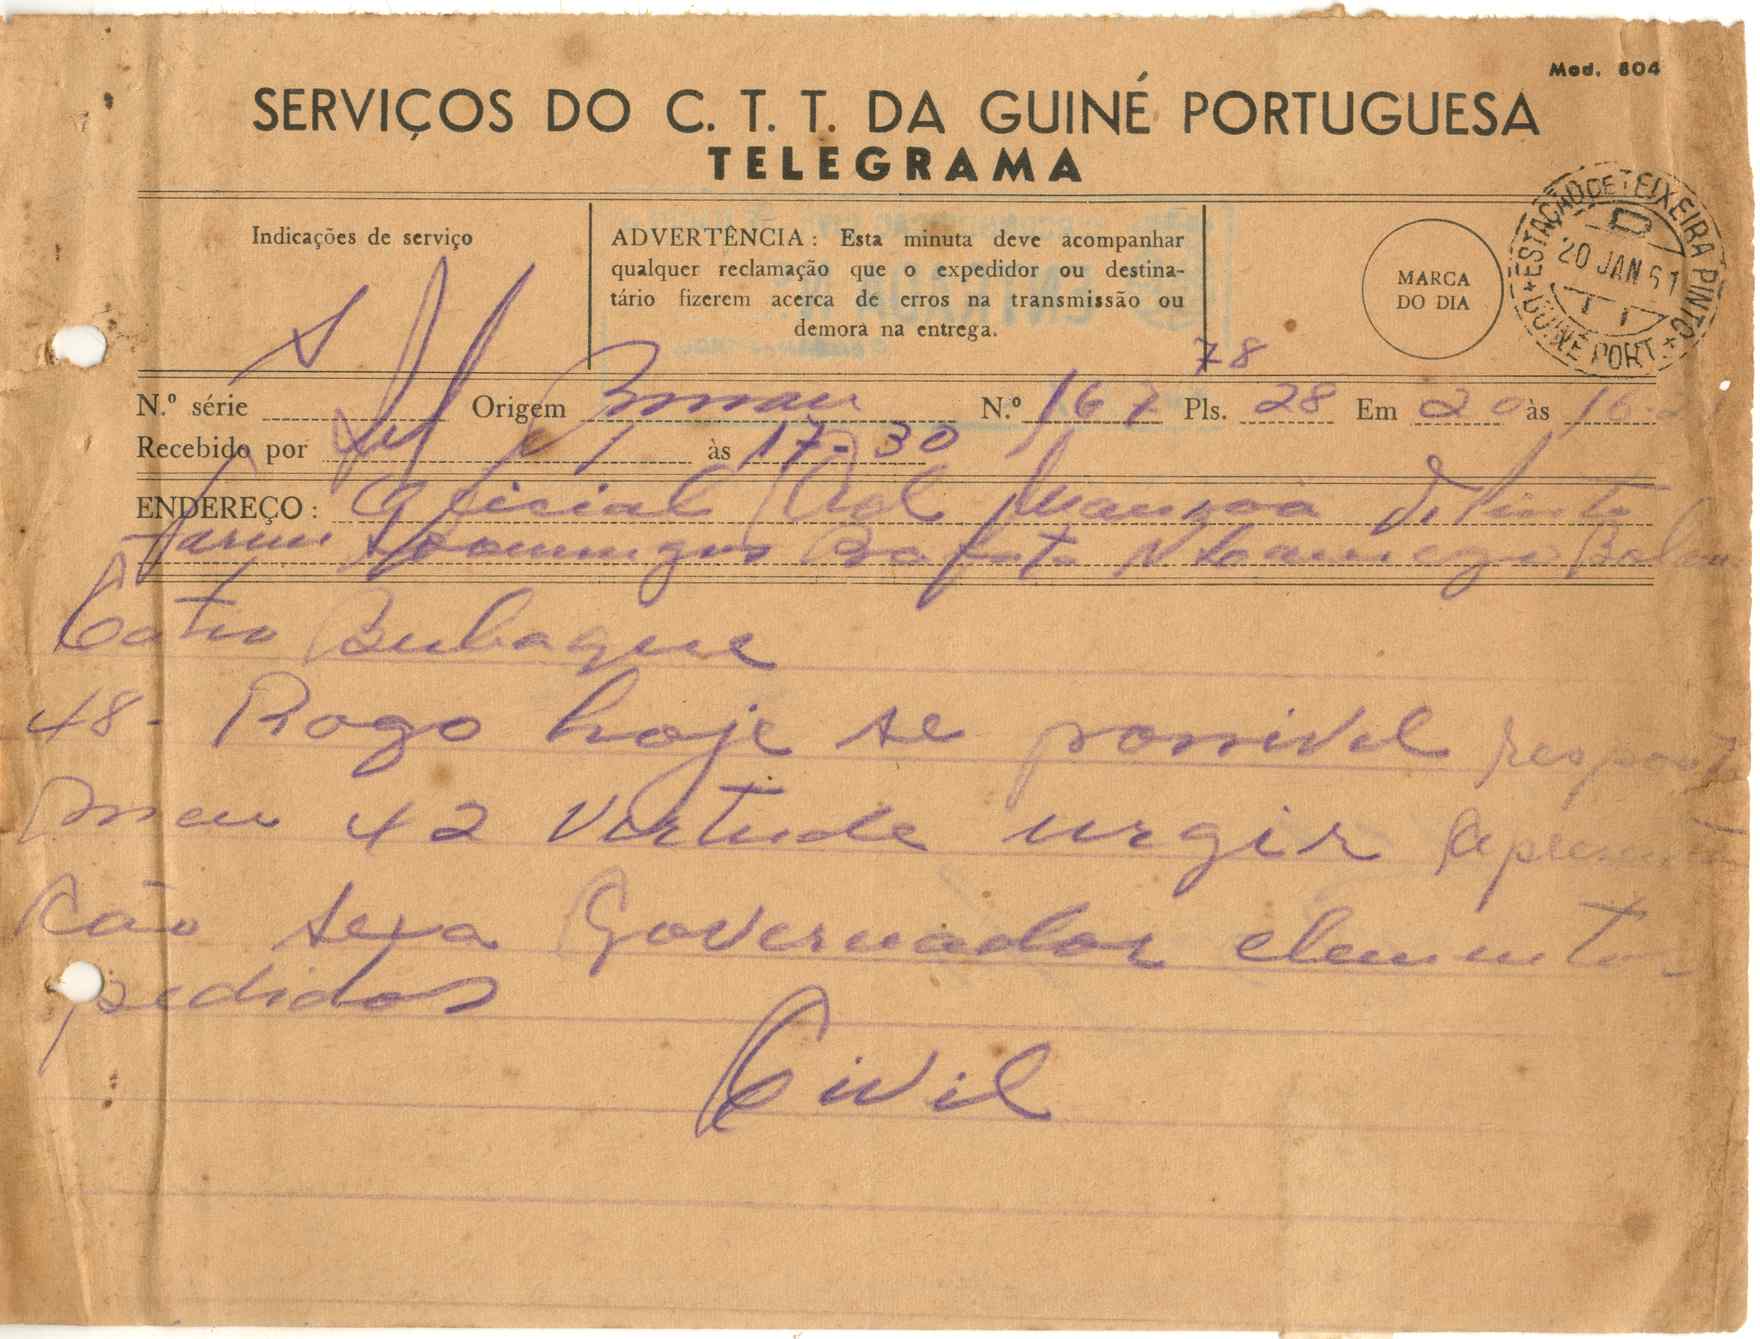 Mod. 804
SERVIÇOS DO C. T. T. DA GUINÉ PORTUGUESA
TELEGRAMA
Indicações de serviço
ADVERTÊNCIA : Esta minuta deve acompanhar
qualquer reclamação que o expedidor ou destina-
tário fizerem acerca de erros na transmissão ou
demora na entrega.
MARCA
DO DIA
ESTAÇÃO DE TEIXEIRA PINTO
20 JAN 61
GUINÉ PORT.
78
N.º série Origem Bissau N.º 167 Pls. 28 Em 20 às 16
Recebido por às 17-30
ENDEREÇO : Oficial Mansoa
Farim Domingos Bafata
Catio Bubaque
48- Rogo hoje se possivel respost
meu 42 Virtude urgir apresenta
cão sexa Governador elementos
pedidos
Civil